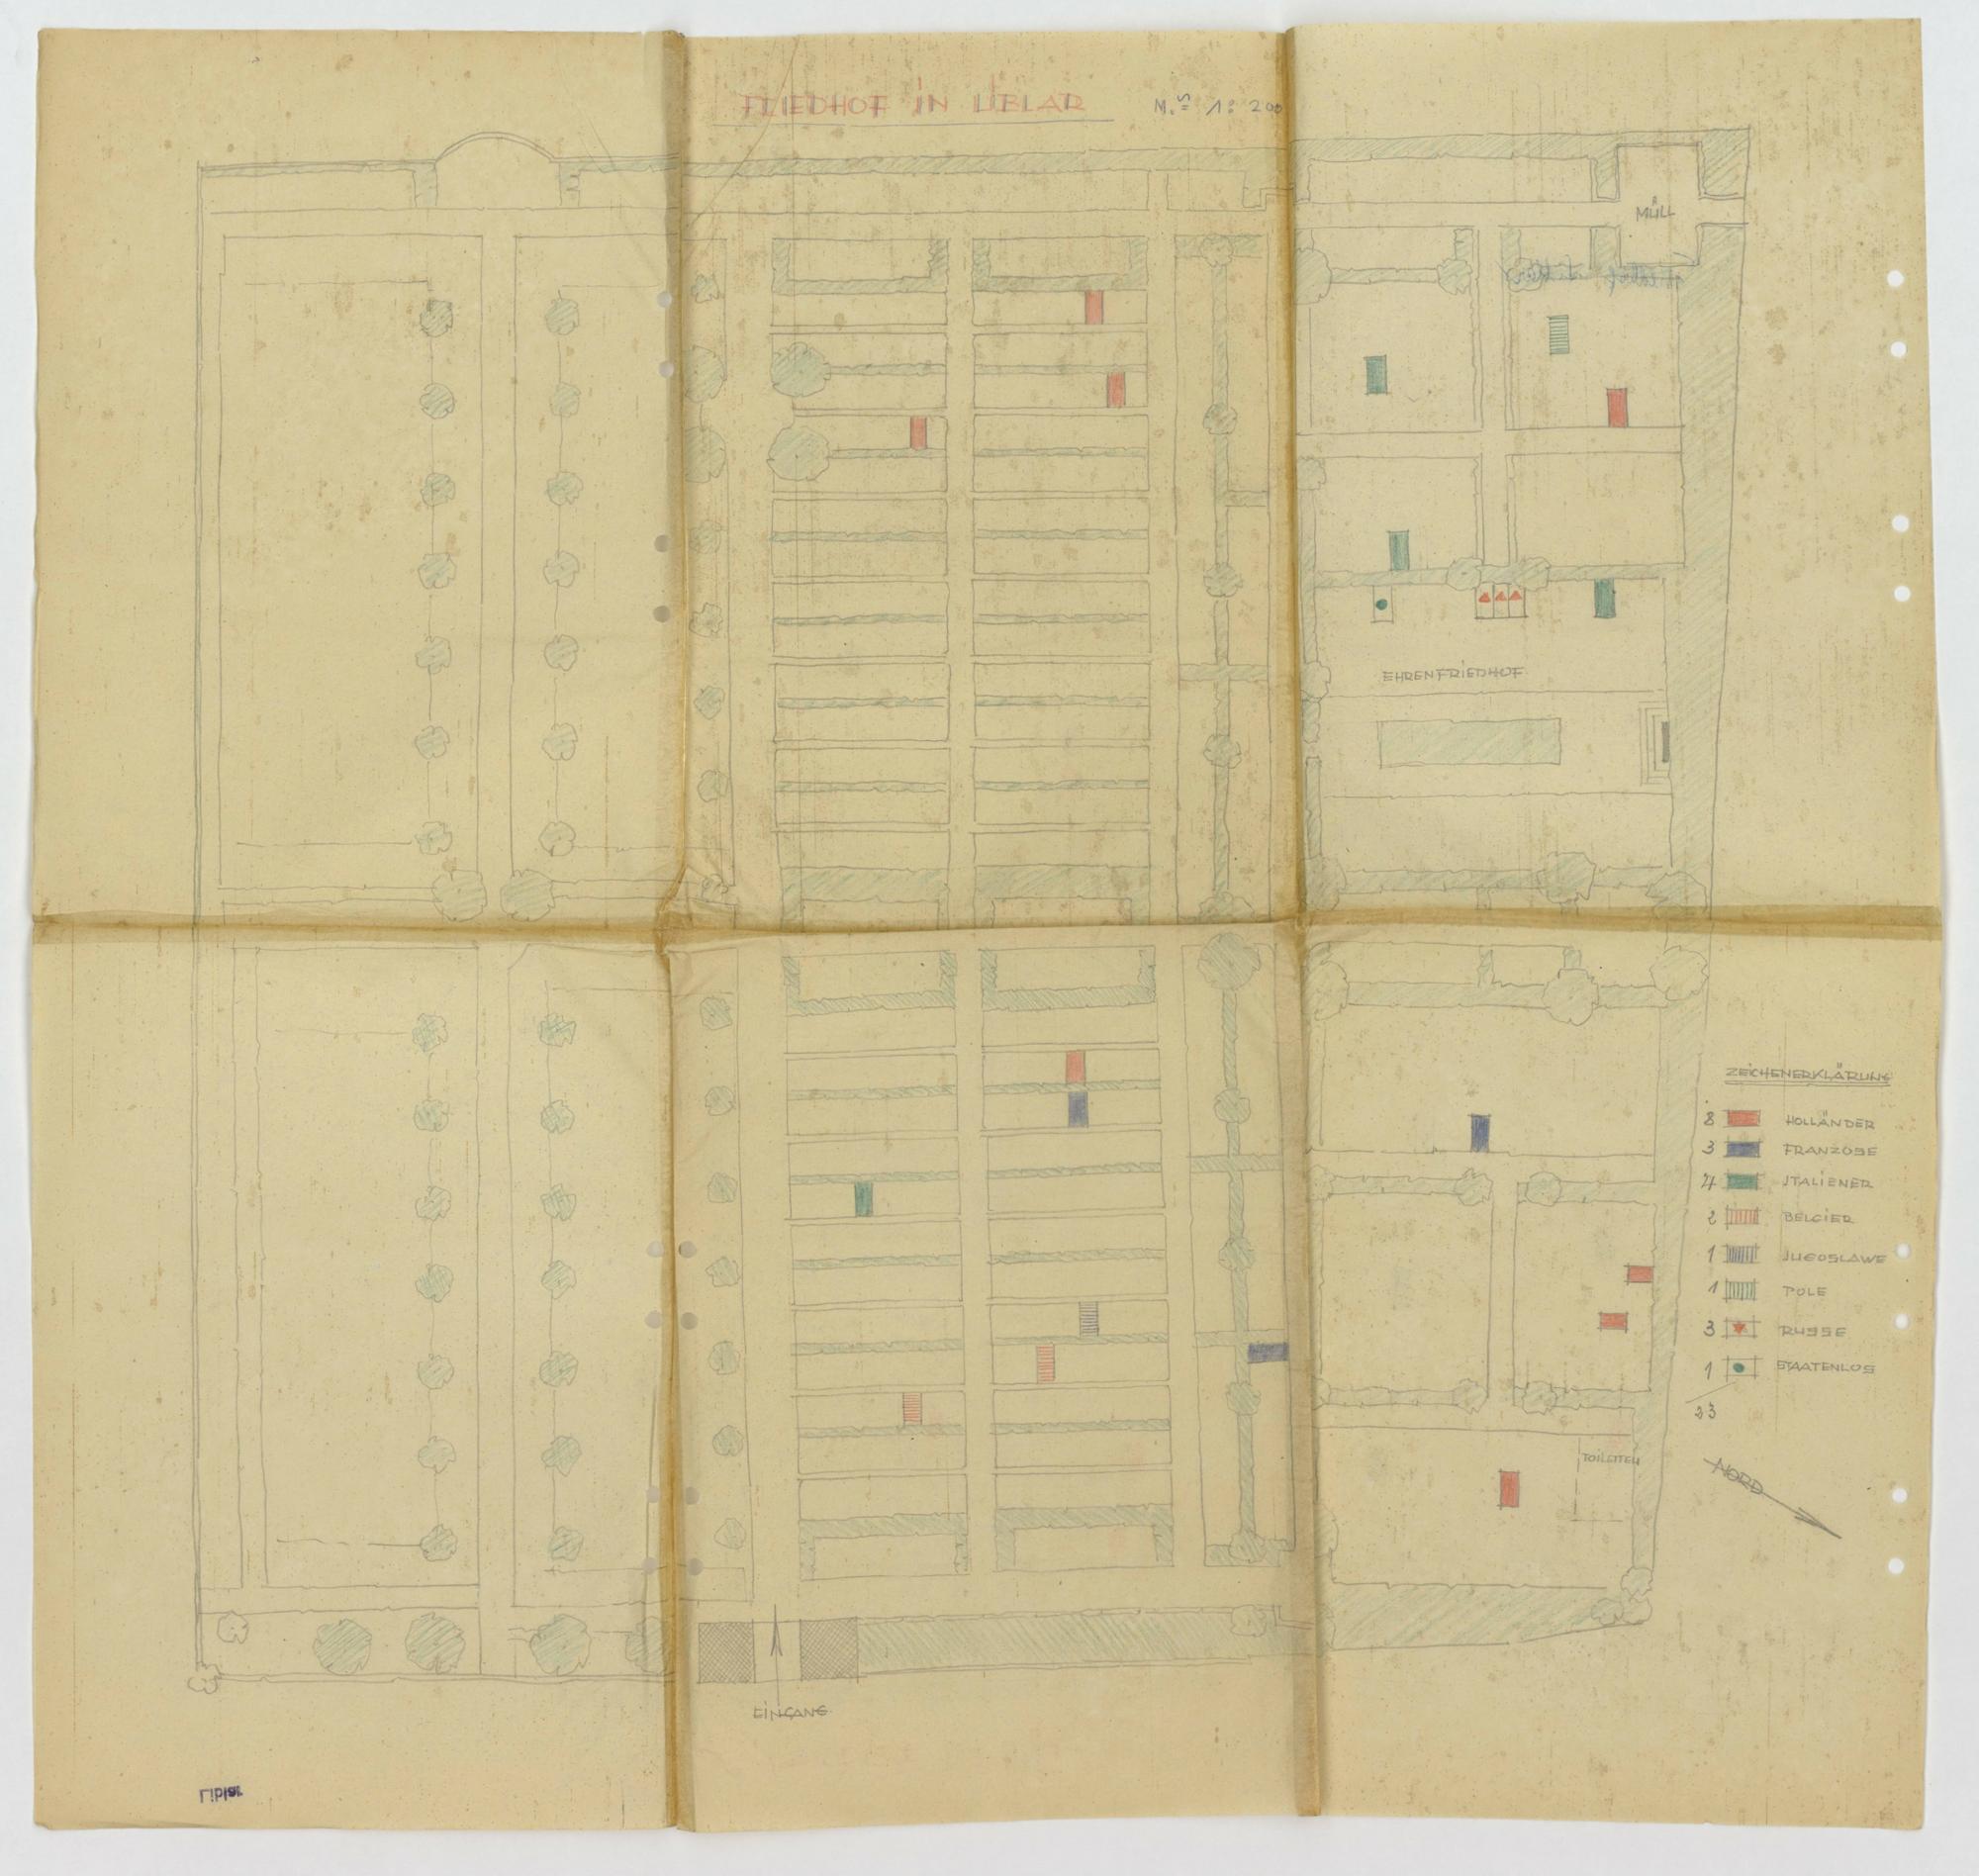 FRIEDHOF IN LIBLAR M.S 1:200
MÜLL
EHRENFRIEDHOF
ZEICHENERKLÄRUNG
8 HOLLÄNDER
3 FRANZOSE
4 ITALIENER
2 BELGIER
1 JUGOSLAWE
1 POLE
3 RUSSE
1 STAATENLOS
23
TOILETTEN
NORD
EINGANG
Liblar